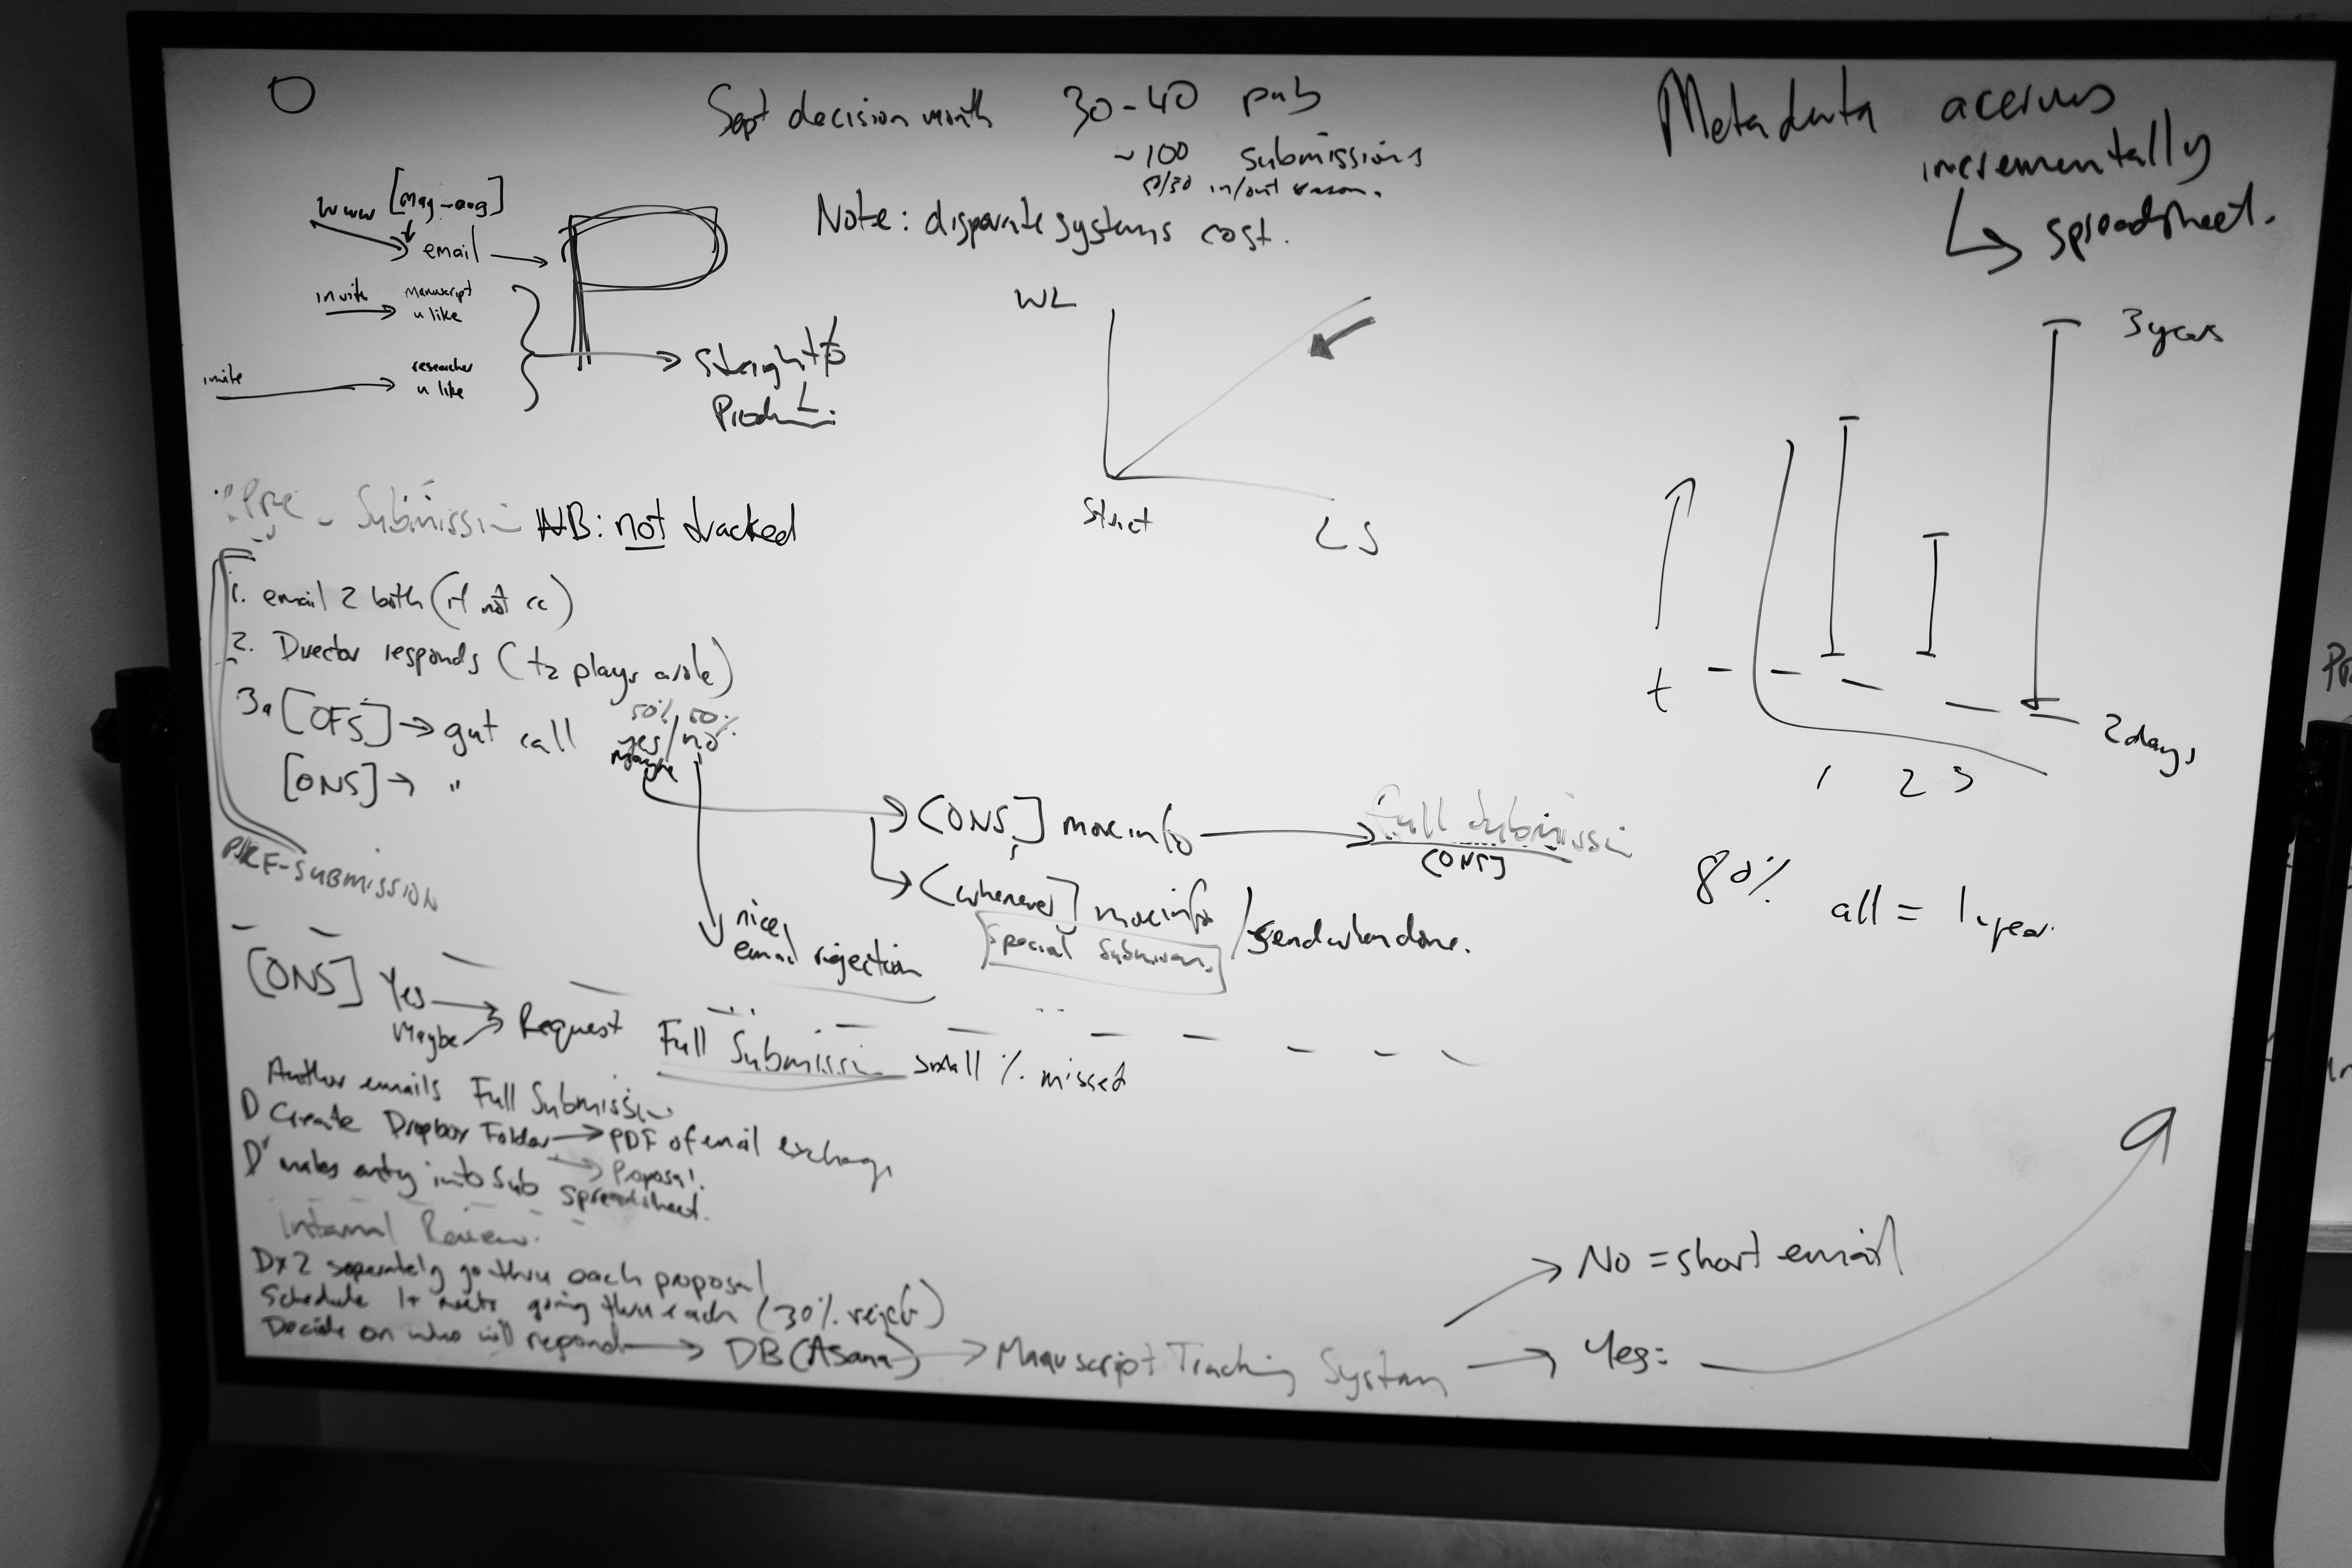 Sept decision month 30-40 pub
~100 submissions
50/50 in/out season.
Note: disparate systems cost.
Metadata accrues
incrementally
spreadsheet.
www [May-Aug]
email
invite manuscript
u like
invite researcher
u like
P
Straight to
Product.
WL
Strict
LS
3 years
t
2 days
1 2 3
80% all = 1 year.
Pre-Submission NB: not tracked
1. email 2 both (if not cc)
2. Director responds (t2 plays a role)
3a [OFS] → gut call 50% 50%
yes/no
Maybe
[ONS] → "
PRE-SUBMISSION
[ONS] more info → Full Submissi
[ONS]
[whenever] more info / send when done.
Special Submission.
nice,
email rejection
[ONS] Yes → Request Full Submissi small % missed
Maybe
Author emails Full Submissi
D Create Dropbox Folder → PDF of email exchange
→ Proposal.
D' makes entry into Sub spreadsheet.
Internal Review.
Dx2 seperately go thru each proposal
Schedule 1+ meets going thru each (30% reject)
Decide on who will respond → DB (Asana) → Manuscript Tracking System
No = short email
Yes: